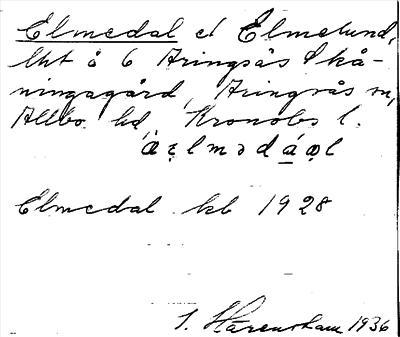 Elmedal el Elmelund,
lht å 6 Aringsås Skå-
ningagård, Aringsås sn,
Allbo hd, Kronobs l.
Elmedal kb 1928
S. Härenstam 1936